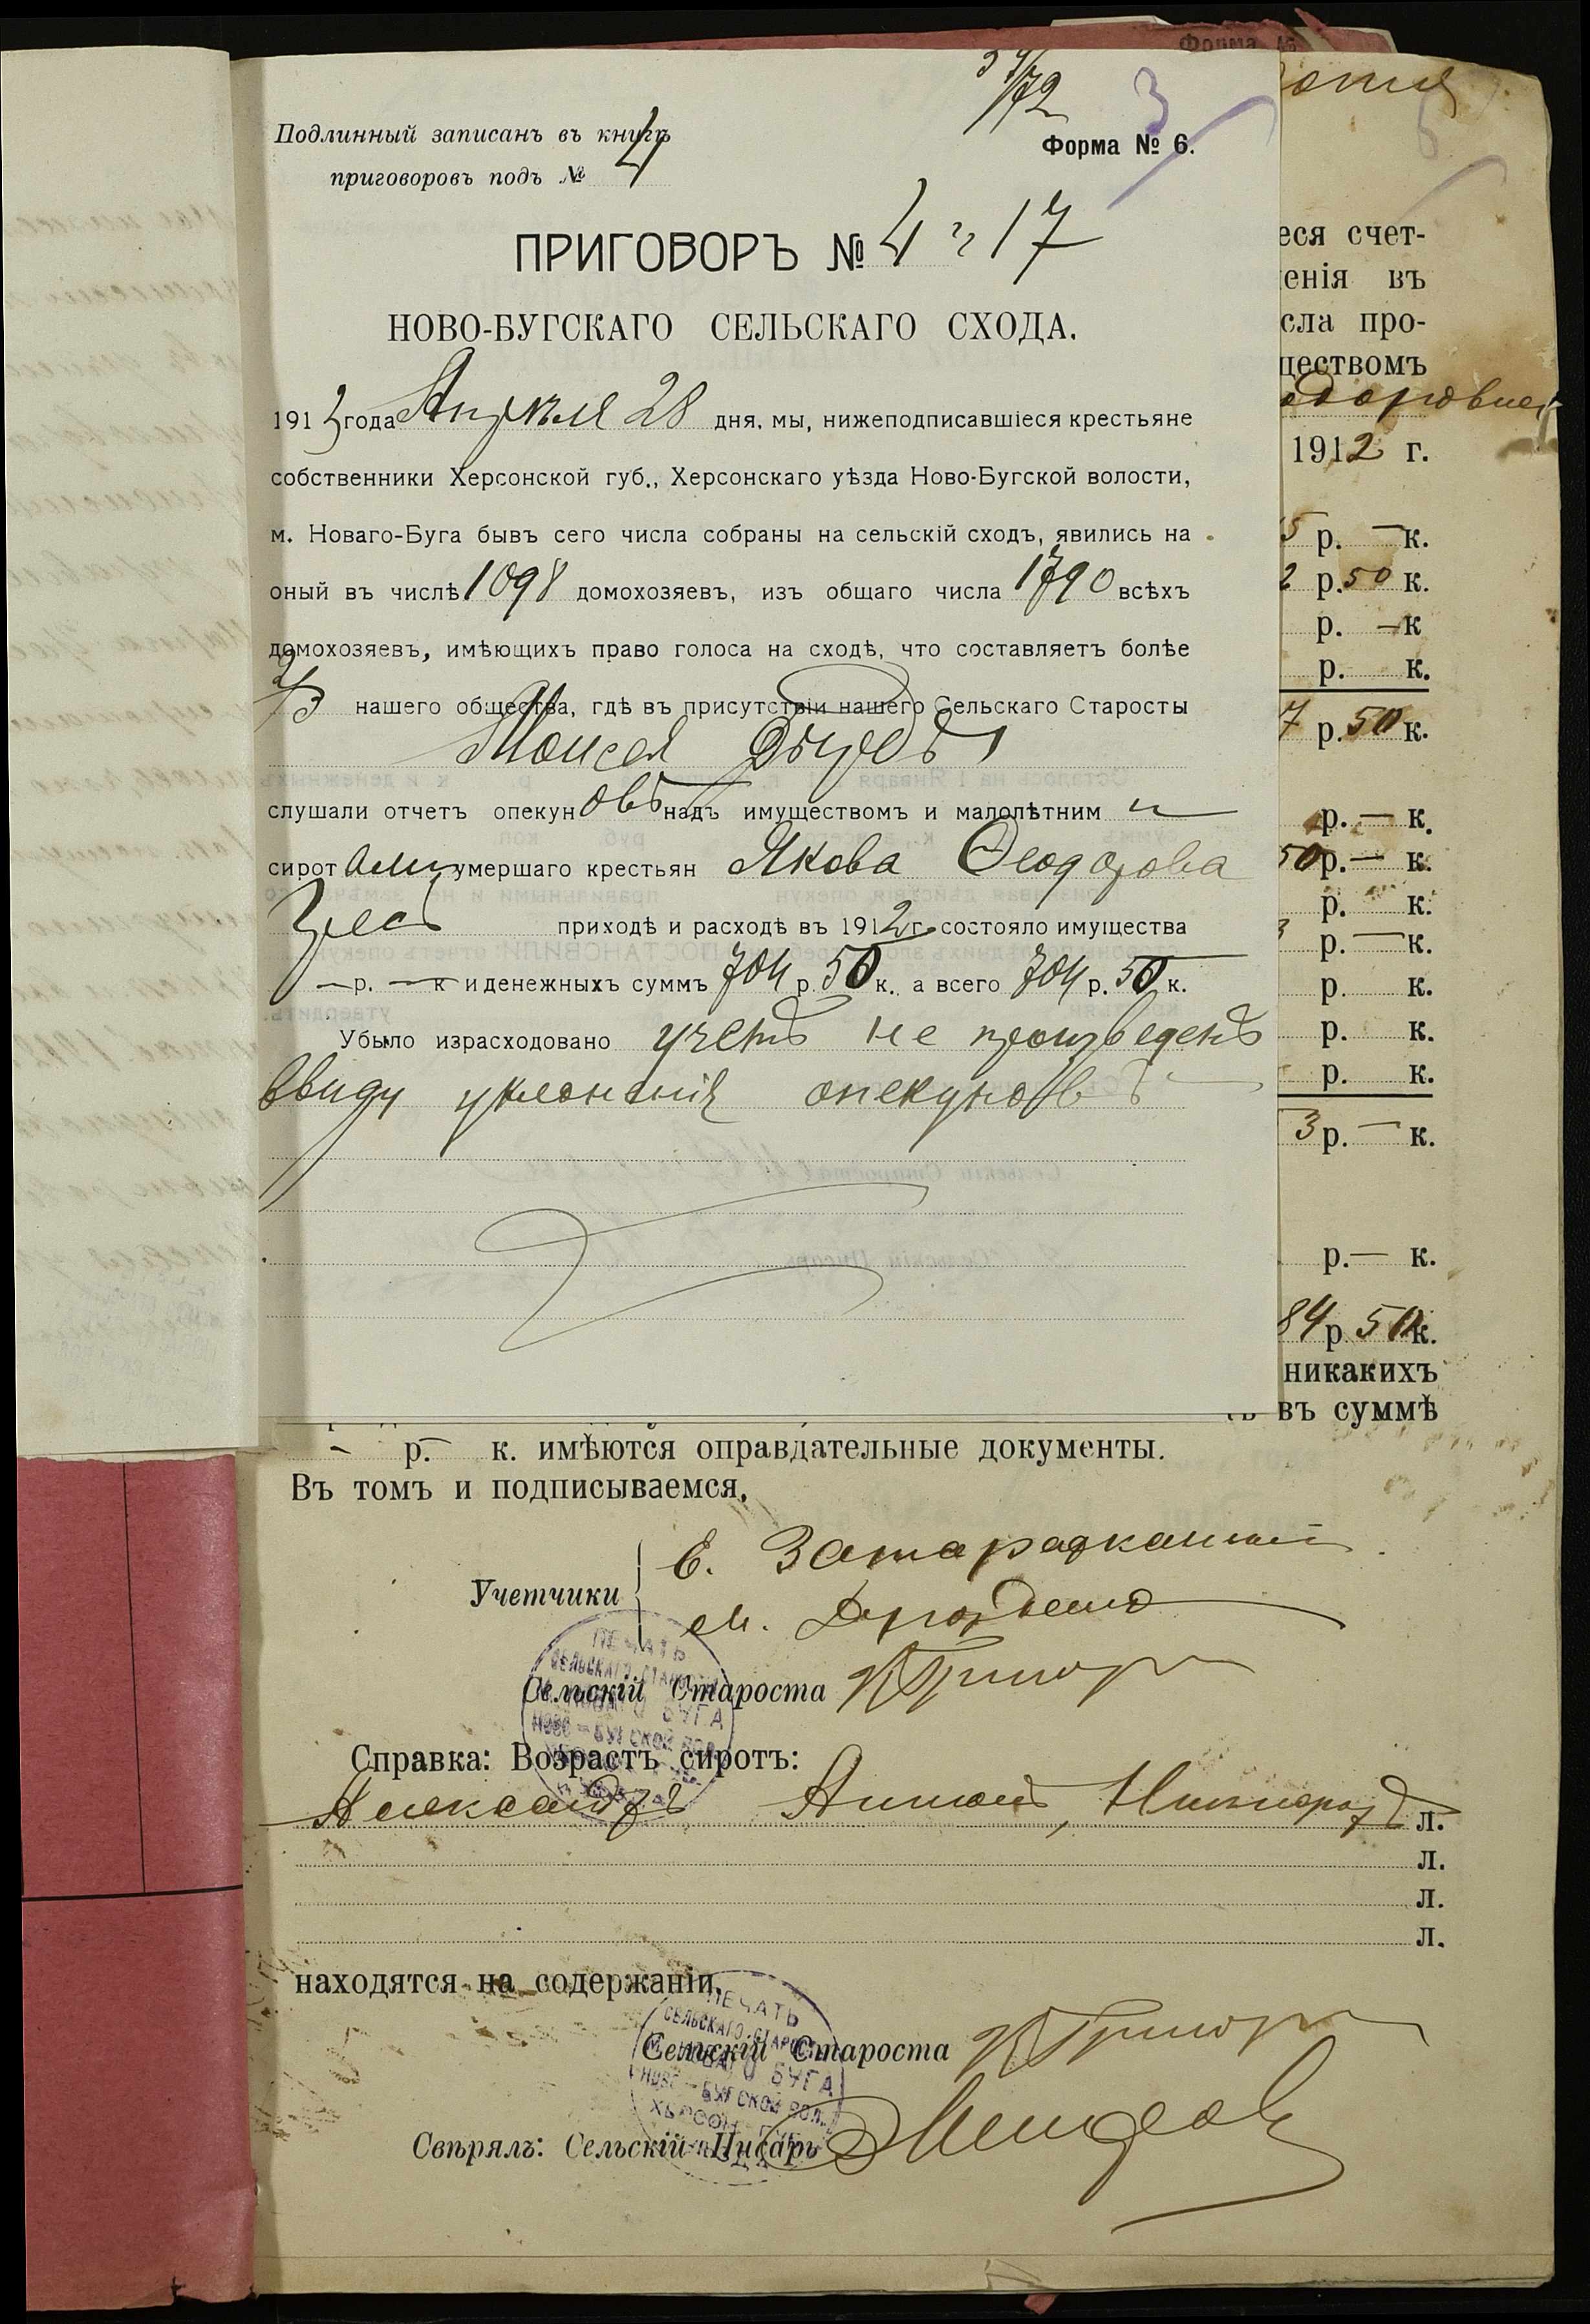 Форма
3
Подлинный записанъ въ книгѣ
Форма № 6.
приговоровъ подъ № 4
ПРИГОВОРЪ № 4 и 17
НОВО-БУГСКАГО СЕЛЬСКАГО СХОДА.
1913 года Апрѣля 28 дня, мы, нижеподписавшіеся крестьяне
собственники Херсонской губ., Херсонскаго уѣзда Ново-Бугской волости,
м. Новаго-Буга бывъ сего числа собраны на сельскій сходъ, явились на
оный въ числѣ 1098 домохозяевъ, изъ общаго числа 1790 всѣхъ
домохозяевъ, имѣющихъ право голоса на сходѣ, что составляетъ болѣе
2/3 нашего общества, гдѣ въ присутствіи нашего Сельскаго Старосты
Моисея
слушали отчетъ опекуновъ надъ имуществомъ и малолѣтним и
сиротами умершаго крестьян Якова Ѳеодорова
приходѣ и расходѣ въ 1912 г. состояло имущества
— р. — к и денежныхъ суммъ 704 р. 50 к. а всего 704 р. 50 к.
Убыло израсходовано учетъ не произведенъ
ввиду уклоненія опекуновъ
еся счет-
енія въ
сла про-
ществомъ
1912 г.
5 р. — к.
2 р. 50 к.
р. — к
р. к.
7 р. 50 к.
р. — к.
50 р. — к.
р. к.
3 р. — к.
р. к.
р. к.
р. к.
3 р. — к.
р. — к.
84 р 50 к.
никакихъ
въ суммѣ
- р. — к. имѣются оправдательные документы.
Въ томъ и подписываемся,
Учетчики
Е.
М.
Сельскій Староста
Справка: Возрастъ сиротъ:
Александръ, Антонъ, Никифоръ л.
л.
л.
л.
находятся на содержаніи,
Сельскій Староста
Свѣрялъ: Сельскій Писарь
ПЕЧАТЬ СЕЛЬСКАГО СТАРОСТЫ НОВАГО БУГА НОВО-БУГСКОЙ ВОЛ.